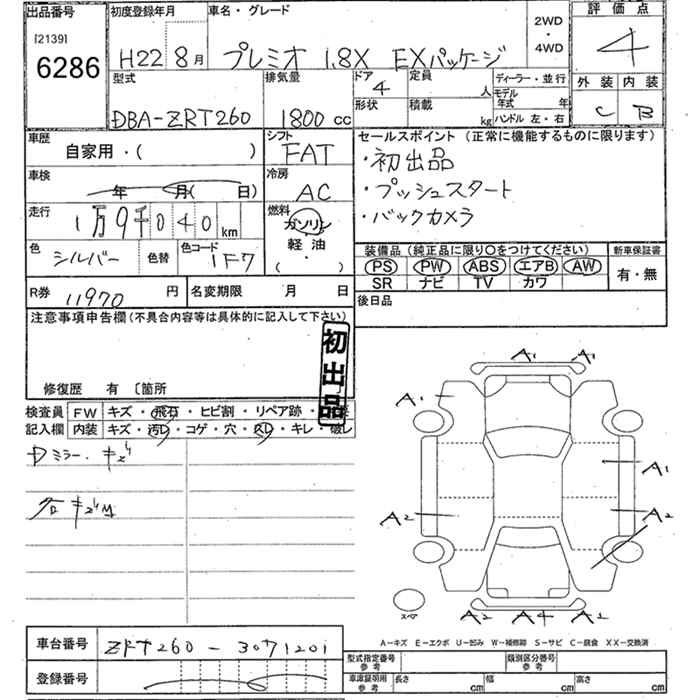 出品番号 初度登録年月 車名・グレード 2WD・4WD 評価点
[2139]
6286 H22 8月 プレミオ 1.8X EXパッケージ 4
型式 排気量 ドア 4 定員 人 ディーラー・並行 外装 内装
形状 積載 kg モデル年式 年 ハンドル 左・右
DBA-ZRT260 1800 cc C B
車歴 シフト セールスポイント (正常に機能するものに限ります)
自家用・( ) FAT ・初出品
車検 冷房 ・プッシュスタート
年 月( 日) AC ・バックカメラ
走行 燃料
1万9千040 km ガソリン
軽油
( )
色 シルバー 色替 色コード 1F7
装備品 (純正品に限り○をつけてください) 新車保証書
PS PW ABS エアB AW 有・無
SR ナビ TV カワ
R券 11970 円 名変期限 月 日 後日品
注意事項申告欄(不具合内容等は具体的に記入して下さい)
初出品
修復歴 有 〔箇所
検査員記入欄 FW キズ・飛石・ヒビ割・リペア跡・
内装 キズ・汚レ・コゲ・穴・スレ・キレ・破レ
Dミラー・キズ
A1
A1
A1
A2 A2
スペア
A2 A4 A2
A-キズ E-エクボ U-凹み W-補修跡 S-サビ C-腐食 XX-交換済
車台番号 ZRT260-3071201
型式指定番号 参考 類別区分番号 参考
登録番号
車庫証明用 参考 長さ cm 幅 cm 高さ cm